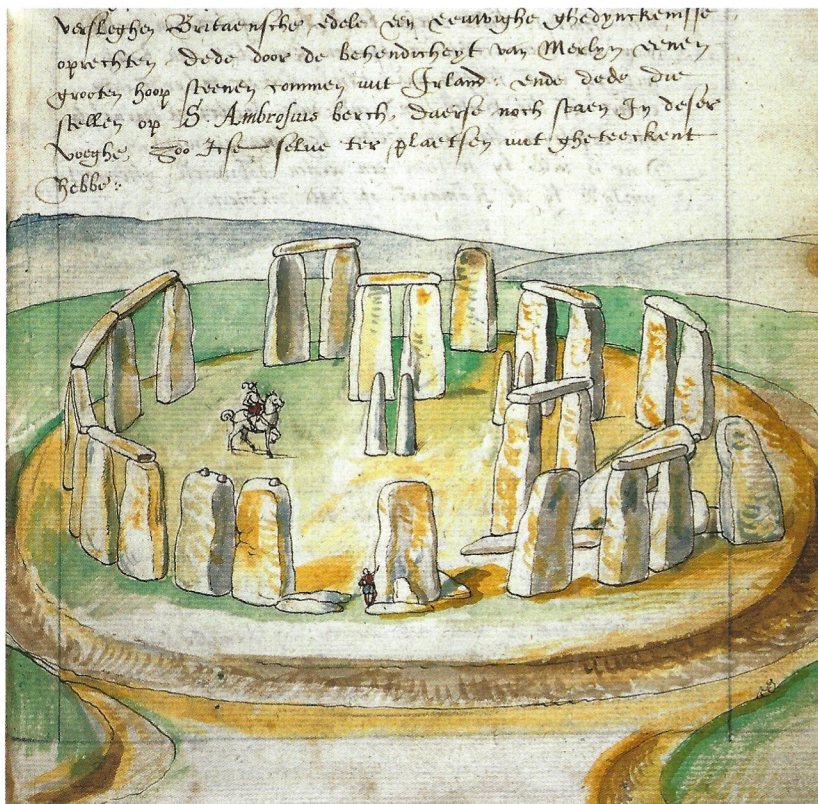 versleghen Britaensche edele een eeuwighe ghedynckenisse
oprechten, dede door de behendicheyt van Merlyn eenen
grooten hoop steenen commen uut Irland: ende dede die
stellen op S. Ambrosius berch, daerse noch staen In deser
voeghe, Soo Icse selve ter plaetsen uut gheteeckent
hebbe: